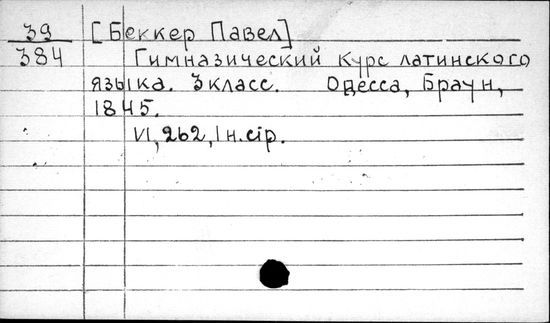 39 [Беккер Павел]
384 Гимназический курс латинского
языка. 3 класс. Одесса, Браун,
1845.
VI, 262, 1 н. сір.